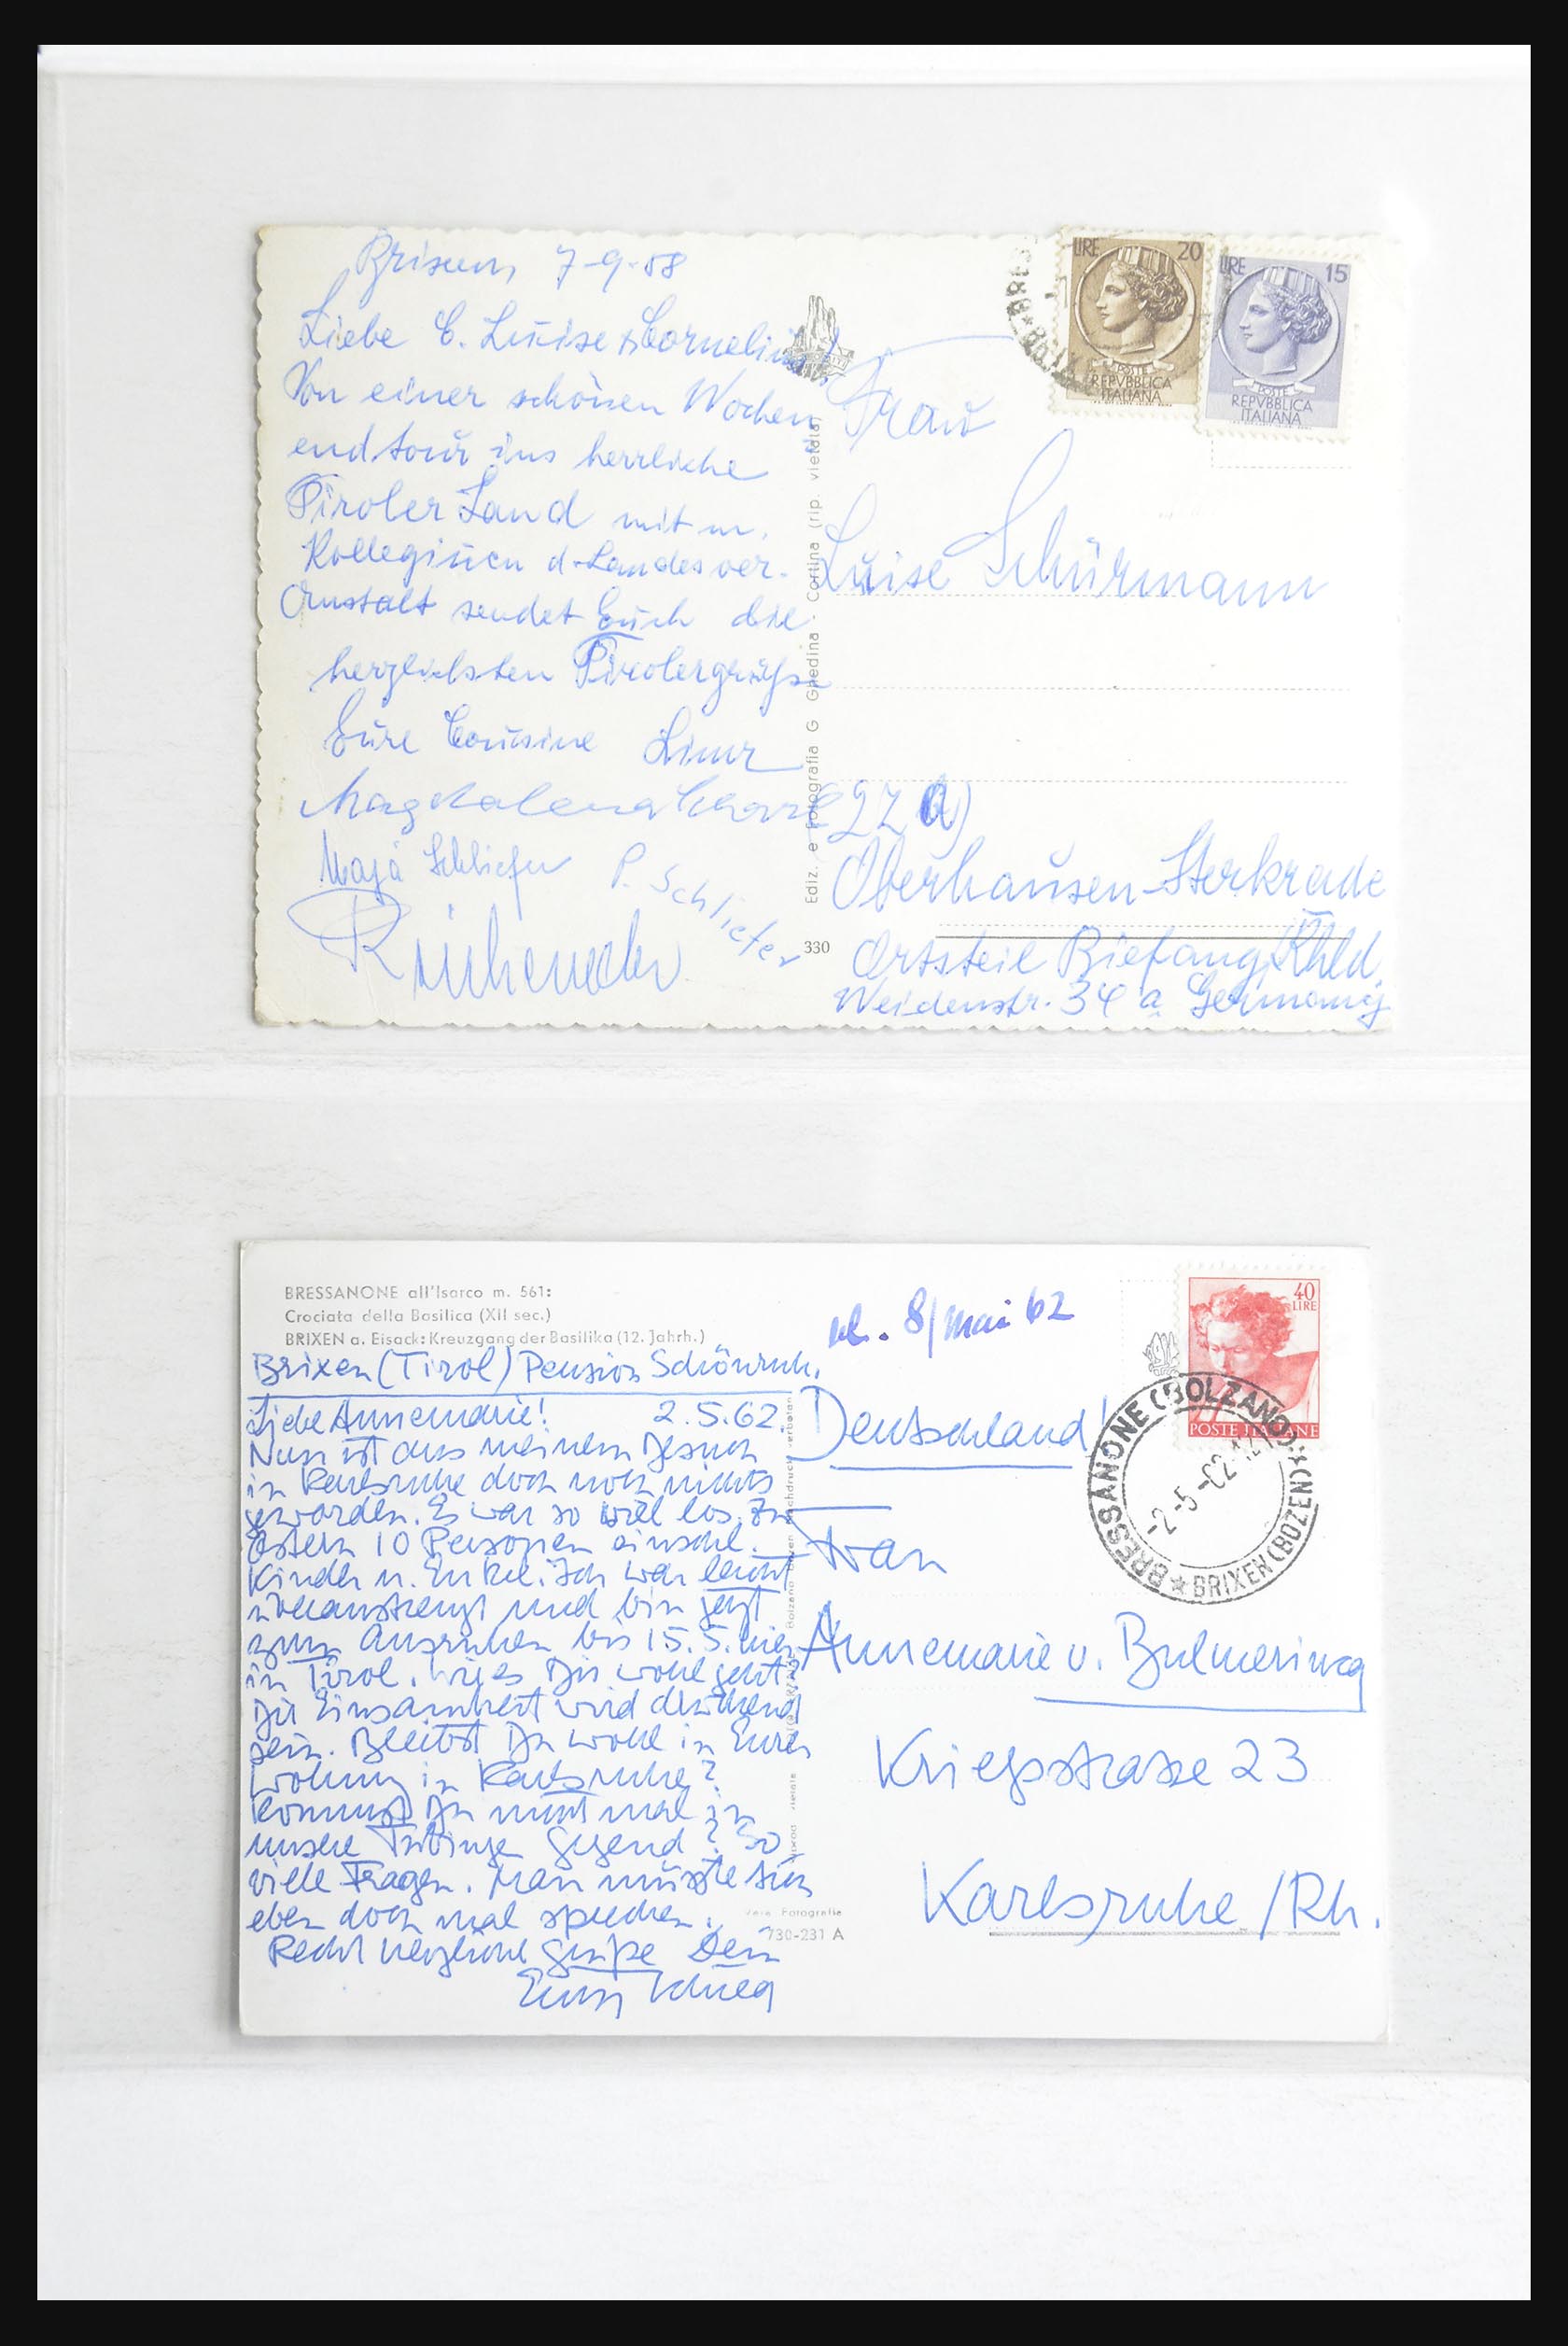 7-9-58
Liebe C. Luise u. Cornelia!
Von einer schönen Wochen
endtour ins herrliche
Tiroler Land mit m.
Kolleginnen d. Landesver.
Anstalt sendet Euch die
herzlichsten Tirolergrüße
Eure Cousine
Magdalena
Maja Schliefer P. Schliefer
LIRE 20
POSTE
REPVBBLICA
ITALIANA
LIRE 15
POSTE
REPVBBLICA
ITALIANA
Frau
Luise Schürmann
(22 a)
Oberhausen-Sterkrade
Ortsteil Biefang Rhld.
Weidenstr. 34 a Germany
Ediz. e Fotografia G Ghedina - Cortina (rip. vietata)
330
BRESSANONE all'Isarco m. 561:
Crociata della Basilica (XII sec.)
BRIXEN a. Eisack: Kreuzgang der Basilika (12. Jahrh.)
Brixen (Tirol) Pension Schönruh.
Liebe Annemarie! 2.5.62.
Nun ist aus meinem Besuch
in Karlsruhe doch noch nichts
geworden. Es war so viel los. Zu
Ostern 10 Personen einschl.
Kinder u. Enkel. Ich war leicht
überanstrengt und bin jetzt
zum Ausruhen bis 15.5. hier
in Tirol. Wie es Dir wohl geht?
Die Einsamkeit wird drückend
sein. Bleibst Du wohl in Eurer
Wohnung in Karlsruhe?
Kommst Du nicht mal in
unsere Tübinger Gegend? So
viele Fragen. Man müsste sich
eben doch mal sprechen.
Recht herzliche Grüße Dein
8/Mai 62
40
LIRE
POSTE ITALIANE
BRESSANONE (BOLZANO)
BRIXEN (BOZEN)
-2-5-62-12
Deutschland!
Frau
Annemarie v. Bulmerincq
Kriegsstrasse 23
Karlsruhe /Rh.
Fotografie
730-231 A